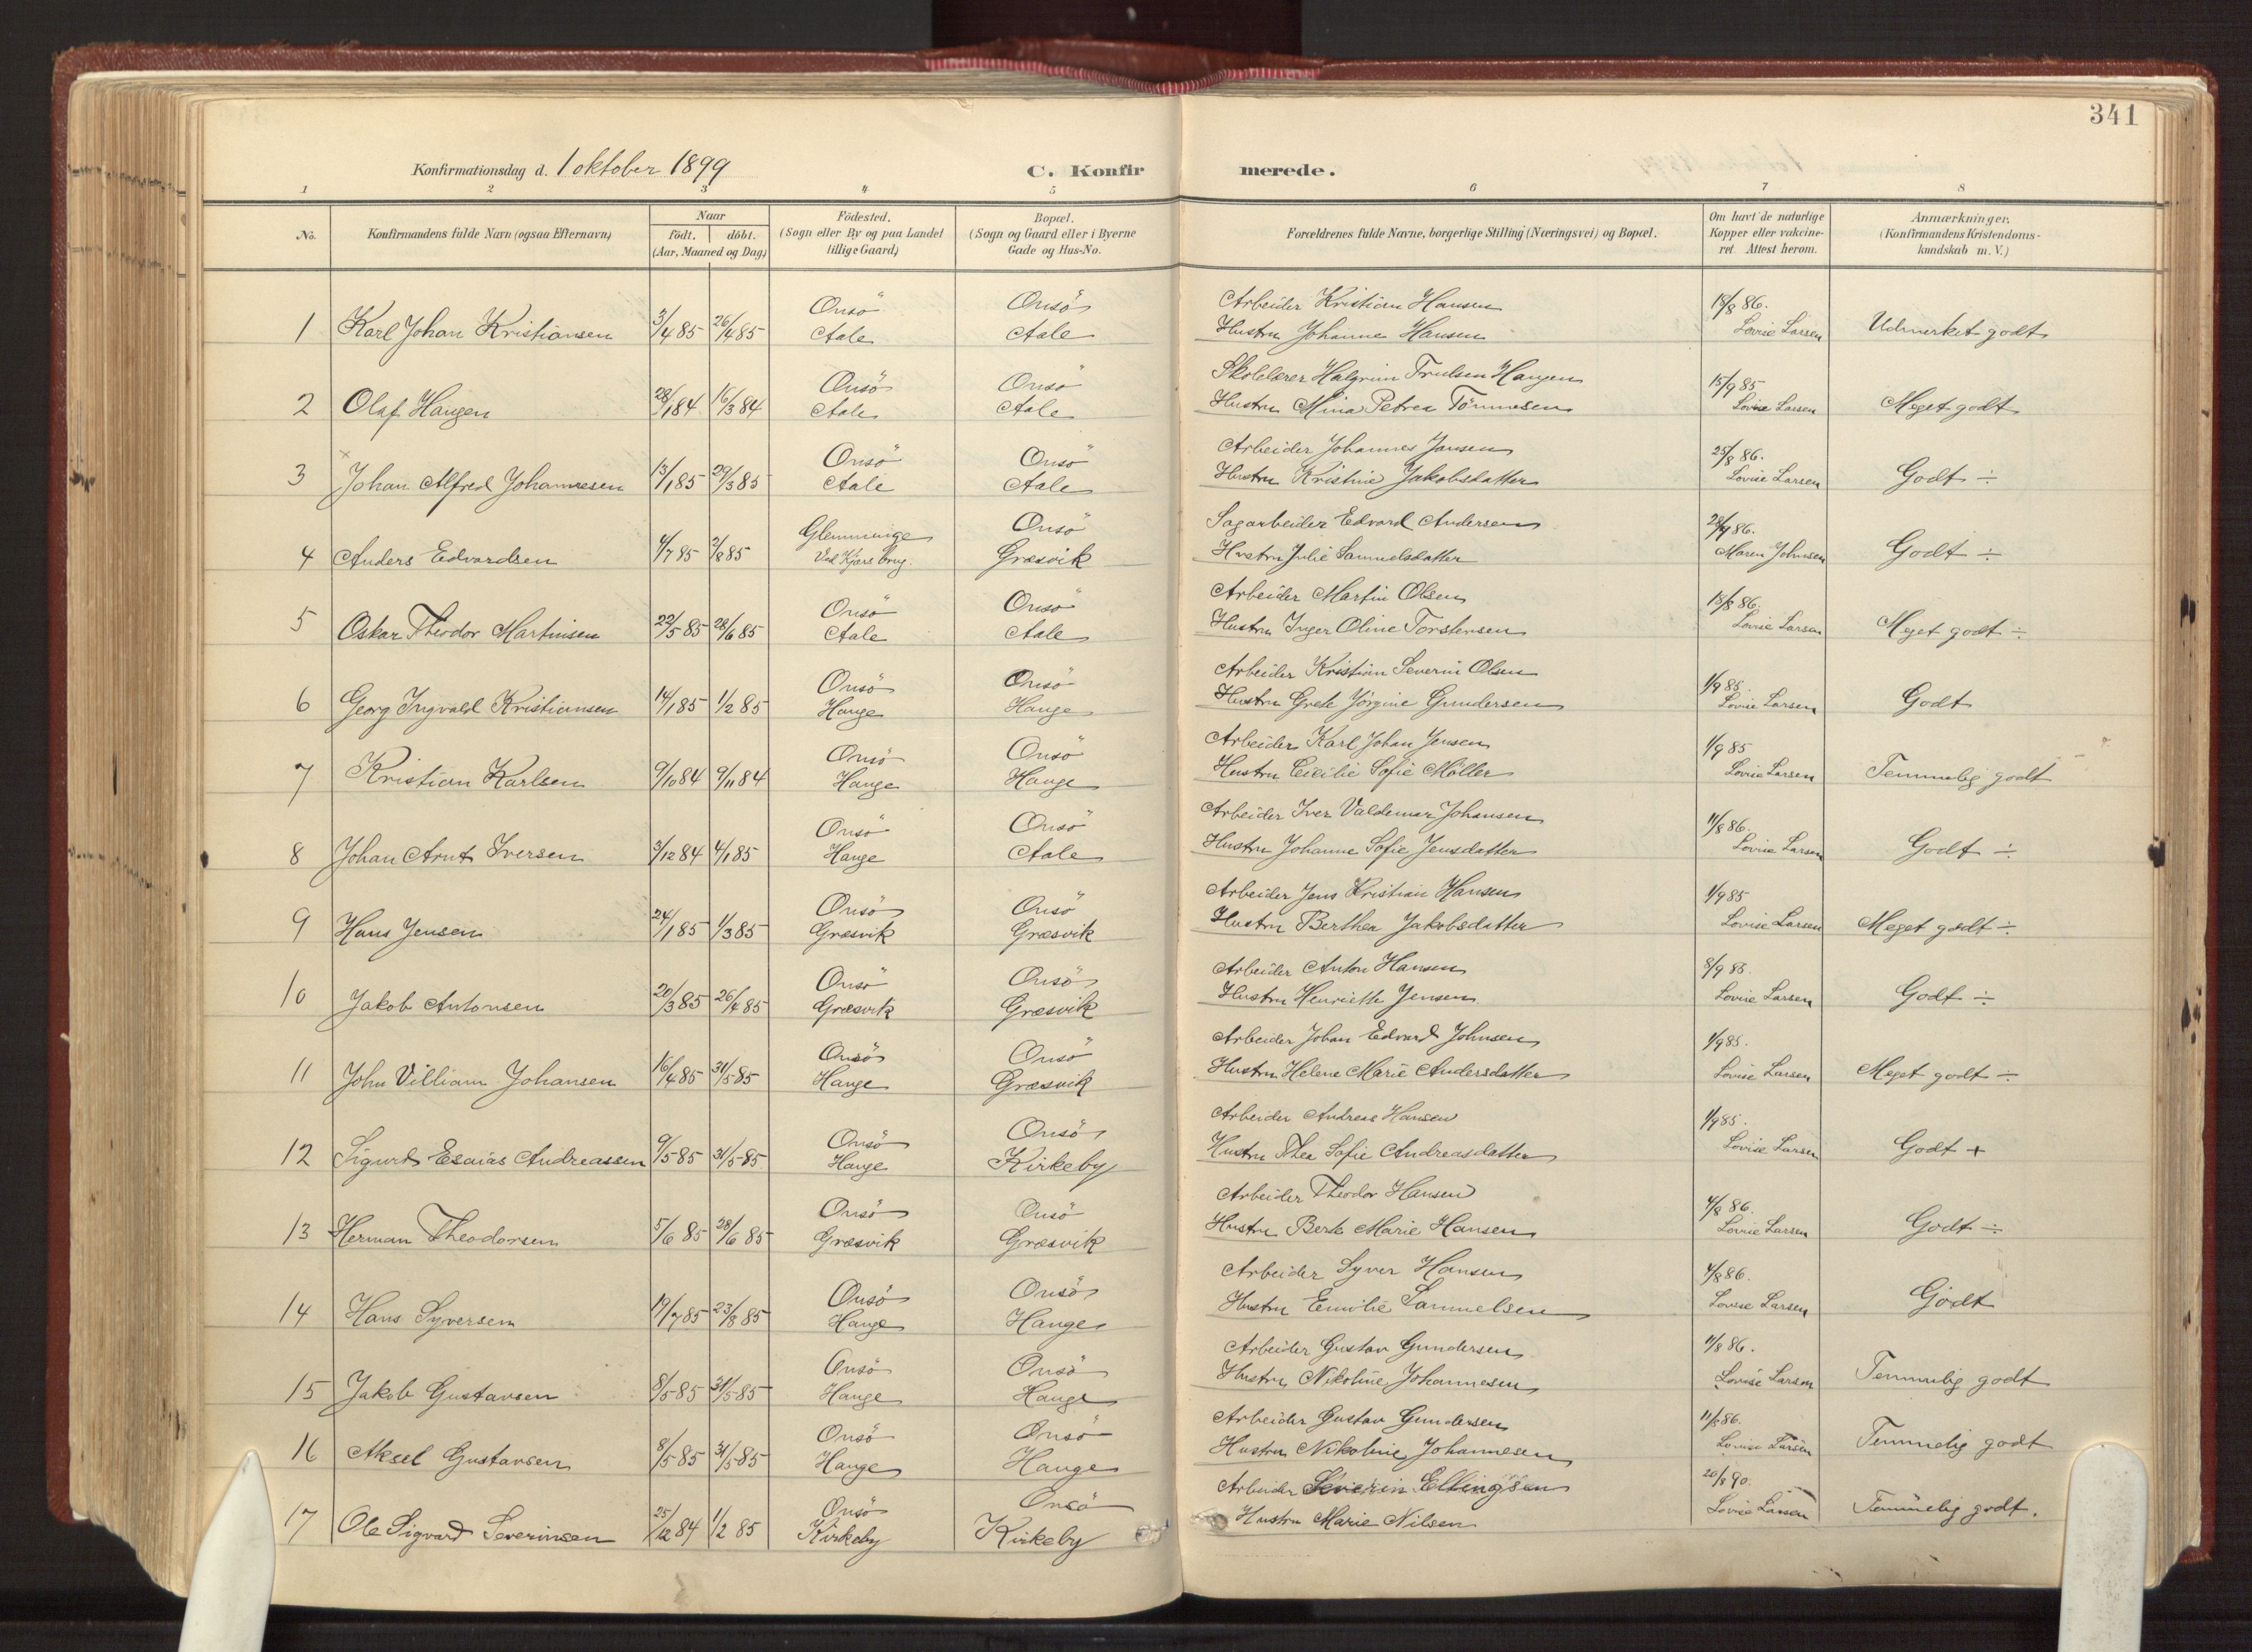 341
Konfirmationsdag d. 1 oktober 1899 C. Konfir merede.
1 2 3 4 5 6 7 8
No. Konfirmandens fulde Navn (ogsaa Efternavn) Naar födt. döbt. (Aar, Maaned og Dag) Födested. (Sogn eller By og paa Landet tillige Gaard) Bopæl. (Sogn og Gaard eller i Byerne Gade og Hus-No. Forældrenes fulde Navne, borgerlige Stilling (Næringsvei) og Bopæl. Om havt de naturlige Kopper eller vakcineret. Attest herom. Anmærkninger. (Konfirmandens Kristendomskundskab m. V.)
Onsö Onsö Arbeider Kristian Hansen 18/8 86.
1 Karl Johan Kristiansen 3/4 85 26/4 85 Aale Aale Hustru Johanne Hansen Lovise Larsen Udmerket godt
Onsö Onsö Skolelærer Halgrim Trulsen Haugen 15/9 85
2 Olaf Haugen 28/1 84 16/3 84 Aale Aale Hustru Mina Petrea Tönnesen Lovise Larsen Meget godt
Onsö Onsö Arbeider Johannes Jansen 25/8 86.
3 Johan Alfred Johannesen 13/1 85 29/3 85 Aale Aale Hustru Kristine Jakobsdatter Lovise Larsen Godt ÷
Glemminge Onsö Sagarbeider Edvard Andersen 28/9 86.
4 Anders Edvardsen 4/7 85 2/8 85 Ved Kjærs brug. Græsvik Hustru Julie Samuelsdatter Maren Johnsen Godt ÷
Onsö Onsö Arbeider Martin Olsen 18/8 86.
5 Oskar Theodor Martinsen 22/5 85 28/6 85 Aale Aale Hustru Inger Oline Torstensen Lovise Larsen Meget godt ÷
Onsö Onsö Arbeider Kristian Severin Olsen 1/9 85.
6 Georg Ingvald Kristiansen 14/1 85 1/2 85 Hauge Hauge Hustru Grete Jörgine Gundersen Lovise Larsen Godt
Onsö Onsö Arbeider Karl Johan Jensen 1/9 85
7 Kristian Karlsen 9/10 84 9/11 84 Hauge Hauge Hustru Cecilie Sofie Möller Lovise Larsen Temmelig godt
Onsö Onsö Arbeider Iver Valdemar Johansen 11/8 86.
8 Johan Arnt Iversen 3/12 84 4/1 85 Hauge Aale Hustru Johanne Sofie Jensdatter Lovise Larsen Godt ÷
Onsö Onsö Arbeider Jens Kristian Hansen 1/9 85
9 Hans Jensen 24/1 85 1/3 85 Græsvik Græsvik Hustru Berthea Jakobsdatter Lovise Larsen Meget godt ÷
Onsö Onsö Arbeider Anton Hansen 8/9 85.
10 Jakob Antonsen 20/3 85 26/4 85 Græsvik Græsvik Hustru Henriette Jensen Lovise Larsen Godt ÷
Onsö Onsö Arbeider Johan Edvard Johnsen 1/9 85.
11 John Villiam Johansen 16/4 85 31/5 85 Hauge Græsvik Hustru Helene Marie Andersdatter Lovise Larsen Meget godt ÷
Onsö Onsö Arbeider Andreas Hansen 1/9 85.
12 Sigurd Esaias Andreassen 9/5 85 31/5 85 Hauge Kirkeby Hustru Thea Sofie Andreasdatter Lovise Larsen Godt +
Onsö Onsö Arbeider Theodor Hansen 4/8 86.
13 Herman Theodorsen 5/6 85 28/6 85 Græsvik Græsvik Hustru Berte Marie Hansen Lovise Larsen Godt ÷
Onsö Onsö Arbeider Syver Hansen 4/8 86.
14 Hans Syversen 19/7 85 23/8 85 Hauge Hauge Hustru Emilie Samuelsen Lovise Larsen Godt
Onsö Onsö Arbeider Gustav Gundersen 11/8 86.
15 Jakob Gustavsen 8/5 85 31/5 85 Hauge Hauge Hustru Nikoline Johannesen Lovise Larsen Temmelig godt
Onsö Onsö Arbeider Gustav Gundersen 11/8 86.
16 Aksel Gustavsen 8/5 85 31/5 85 Hauge Hauge Hustru Nikoline Johannesen Lovise Larsen Temmelig godt
Onsö Onsö Arbeider Severin Ellingsen 20/8 90.
17 Ole Sigvard Severinsen 25/12 84 1/2 85 Kirkeby Kirkeby Hustru Marie Nilsen Lovise Larsen Temmelig godt.